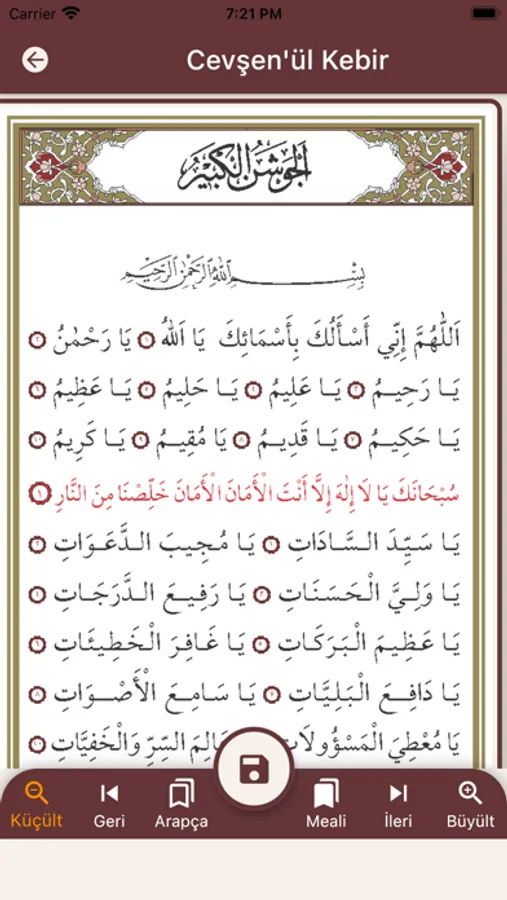 Carrier 7:21 PM
Cevşen'ül Kebir
اَلْجَوْشَنُ الْكَبِيرُ
بِسْمِ اللّٰهِ الرَّحْمٰنِ الرَّحِيمِ
اَللّٰهُمَّ إِنِّي أَسْأَلُكَ بِأَسْمَائِكَ يَا اَللّٰهُ ١ يَا رَحْمٰنُ ٢
يَا رَحِيمُ ٣ يَا عَلِيمُ ٤ يَا حَلِيمُ ٥ يَا عَظِيمُ ٦
يَا حَكِيمُ ٧ يَا قَدِيمُ ٨ يَا مُقِيمُ ٩ يَا كَرِيمُ ١٠
سُبْحَانَكَ يَا لَا إِلٰهَ إِلَّا أَنْتَ الْأَمَانَ الْأَمَانَ خَلِّصْنَا مِنَ النَّارِ ١
يَا سَيِّدَ السَّادَاتِ ١ يَا مُجِيبَ الدَّعَوَاتِ ٢
يَا وَلِيَّ الْحَسَنَاتِ ٣ يَا رَفِيعَ الدَّرَجَاتِ ٤
يَا عَظِيمَ الْبَرَكَاتِ ٥ يَا غَافِرَ الْخَطِيئَاتِ ٦
يَا دَافِعَ الْبَلِيَّاتِ ٧ يَا سَامِعَ الْأَصْوَاتِ ٨
يَا مُعْطِيَ الْمَسْؤُولَاتِ عَالِمَ السِّرِّ وَالْخَفِيَّاتِ ١٠
Küçült Geri Arapça Meali İleri Büyült